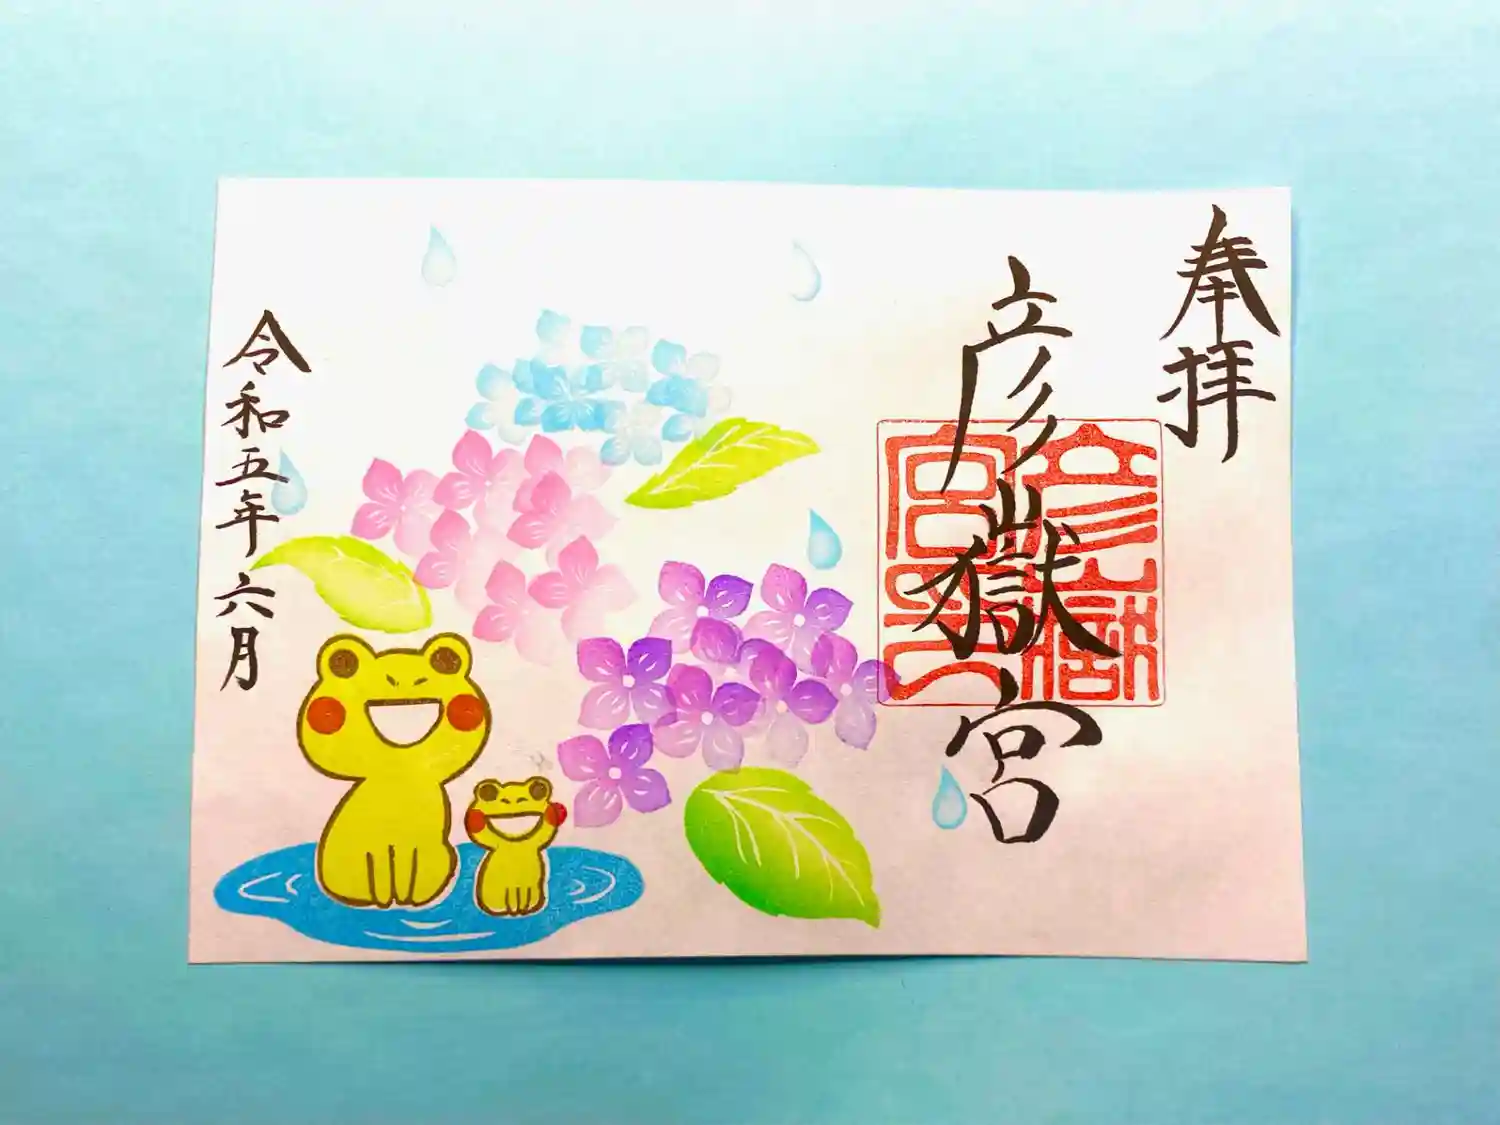 奉拝
彦嶽宮
彦嶽宮
令和五年六月